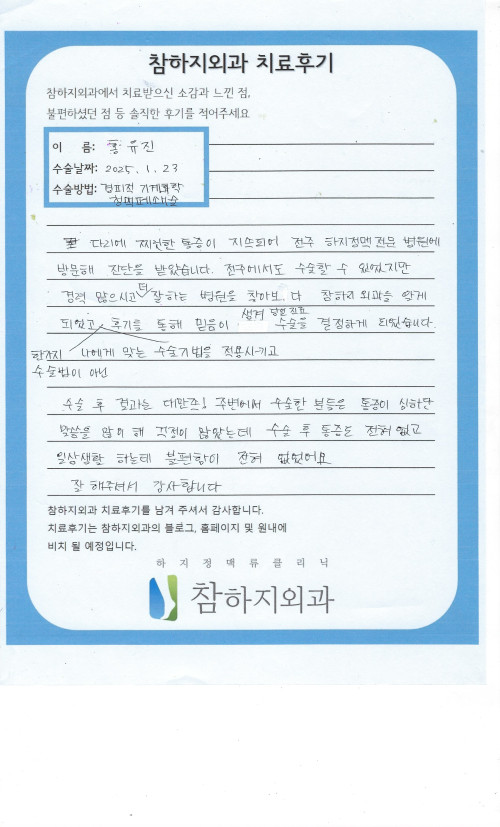 참하지외과 치료후기
참하지외과에서 치료받으신 소감과 느낀 점,
불편하셨던 점 등 솔직한 후기를 적어주세요
이 름: 홍유진
수술날짜: 2025. 1. 23
수술방법: 경피적 기계화학
정맥폐쇄술
다리에 찌릿한 통증이 지속되어 전주 하지정맥전문 병원에
방문해 진단을 받았습니다. 전주에서도 수술할 수 있었지만
경력 많으시고 더 잘하는 병원을 찾아보다 참하지외과를 알게
되었고, 후기를 통해 믿음이 생겨 당일진료 수술을 결정하게 되었습니다.
한가지 수술법이 아닌 나에게 맞는 수술기법을 적용시키고
수술 후 결과는 대만족! 주변에서 수술한 분들은 통증이 심하단
말씀을 많이 해 걱정이 많았는데 수술 후 통증도 전혀 없고
일상생활 하는데 불편함이 전혀 없었어요
잘 해주셔서 감사합니다
참하지외과 치료후기를 남겨 주셔서 감사합니다.
치료후기는 참하지외과의 블로그, 홈페이지 및 원내에
비치 될 예정입니다.
하지정맥류클리닉
참하지외과